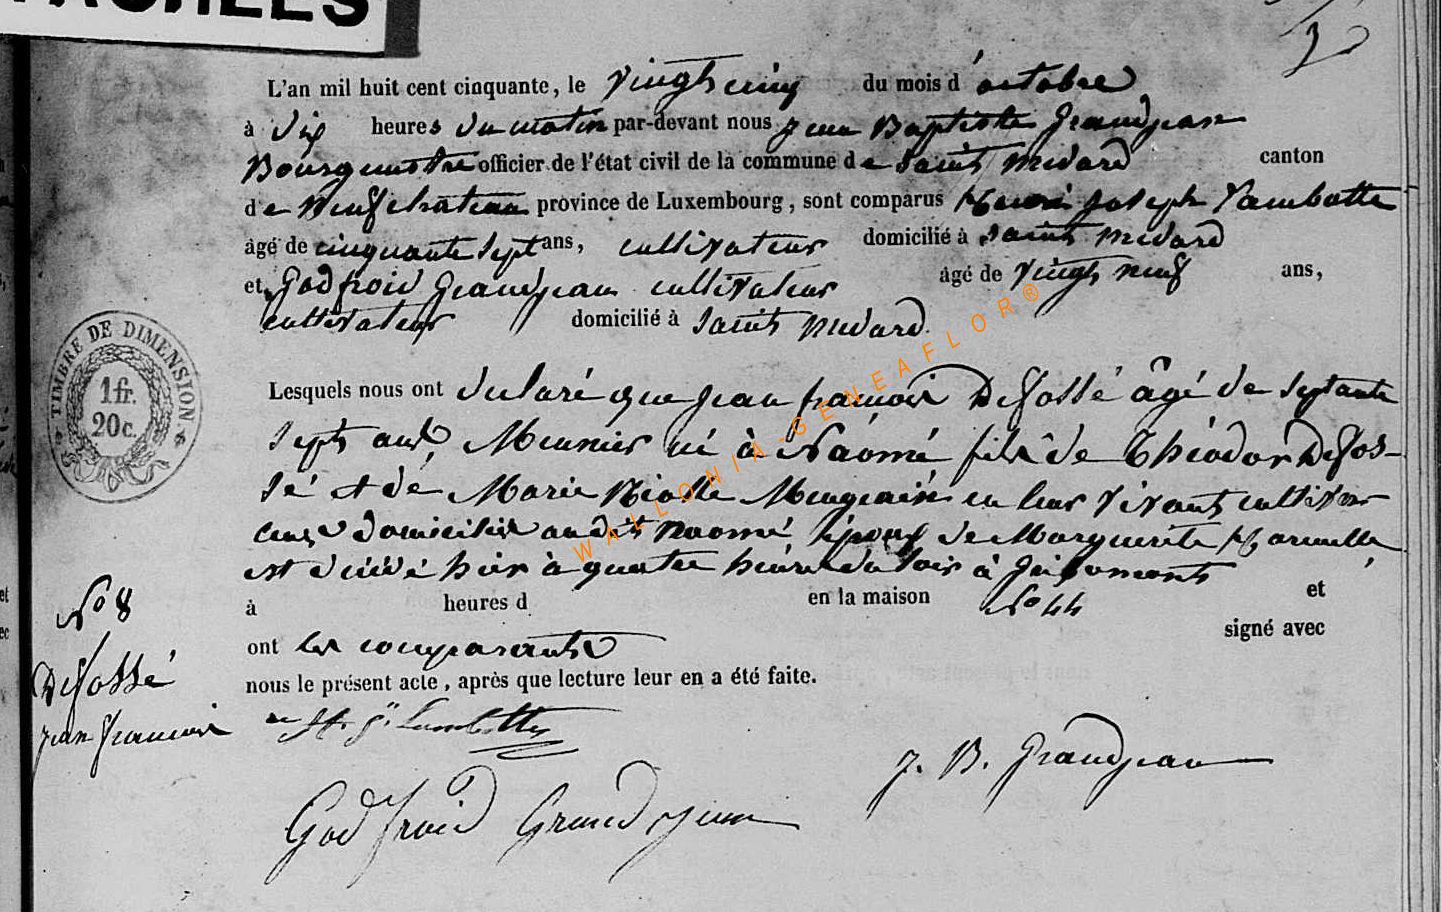 L'an mil huit cent cinquante, le vingt cinq du mois d'octobre
à dix heures du matin par-devant nous jean Baptiste Grandjean
Bourgmestre officier de l'état civil de la commune de Saint Medard canton
de Neufchateau province de Luxembourg, sont comparus Henri joseph Lambotte
âgé de cinquante sept ans, cultivateur domicilié à Saint Medard
et Godfroid Grandjean cultivateur âgé de vingt neuf ans,
cultivateur domicilié à Saint Medard
Lesquels nous ont declaré que jean françois Defossé âgé de septante
sept ans, Meunier né à Naomé, fils de Théodor Defos-
sé et de Marie Nicolle en leur vivant cultiva-
teurs domiciliés audit Naomé époux de Marguerite
est décédé hier à quatre heures du soir à
à heures d en la maison N° 44 et
ont les comparants signé avec
nous le présent acte, après que lecture leur en a été faite.
H. J. Lambotte
J. B. Grandjean
Godfroid Grandjean
N° 8
Defossé
jean francois
TIMBRE DE DIMENSION
1 fr.
20 c.
WALLONIA-GENEAFLOR®